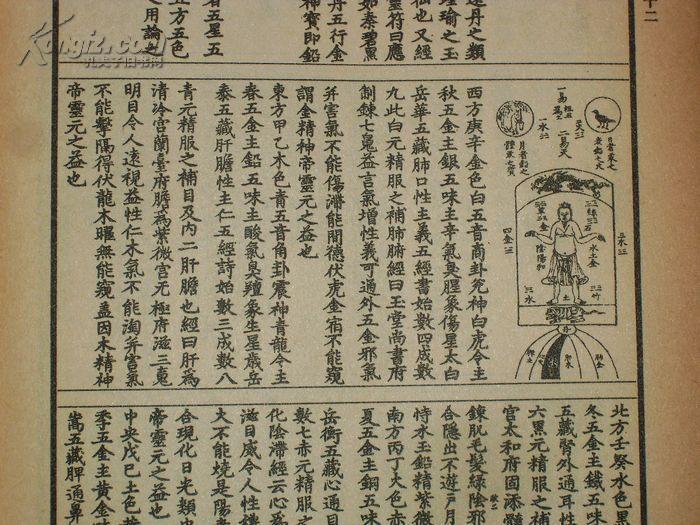 十二
遠丹之類
理瑜之玉
仙也又經
靈符曰應
如泰碧黑
丹五行金
神寶即鉛
者五星五
正方五色
之用論也
Kongfz.com
孔夫子旧书网
一水
二易
四金
水土金
陰陽和
土
竹
丹
西方庚辛金色白五音商卦兌神白虎令主
秋五金主銀五味主辛氣臭腥象傷星太白
岳華五藏肺口性主義五經書始數四成數
九此白元精服之補肺腑經曰玉堂尚書府
制鍊七魄益言氣增性義可通外五金邪氣
并害氣不能傷滯能間德伏虎金宿不能窺
謂金精神帝靈元之益也
東方甲乙木色青五音角卦震神青龍令主
春五金主鉛五味主酸氣臭羶象生星歲岳
泰五藏肝膽性主仁五經詩始數三成數八
青元精服之補目及內二肝膽也經曰肝爲
清冷宮蘭臺府膽爲紫微宮无極府滋三䰟
明目令人遠視益性仁木氣不能淘并害氣
不能擊隔得伏龍木曜無能窺盖因木精神
帝靈元之益也
北方壬癸水色黑
冬五金主鐵五味
五藏腎外通耳性
六黑元精服之補
宮太和府固添髓
鍊肌毛髮綠陰邪
合隱出不遊戸月
恃水玉鉛精紫微
南方丙丁火色赤
夏五金主銅五味
岳衡五藏心通目
數七赤元精服之
化陰滯經云心爲
滋目威令人性禮
大不能燒是陽
合現化日光類
帝靈元之益也
中央戊己土色黃
季五金主黃金
嵩五藏脾通鼻